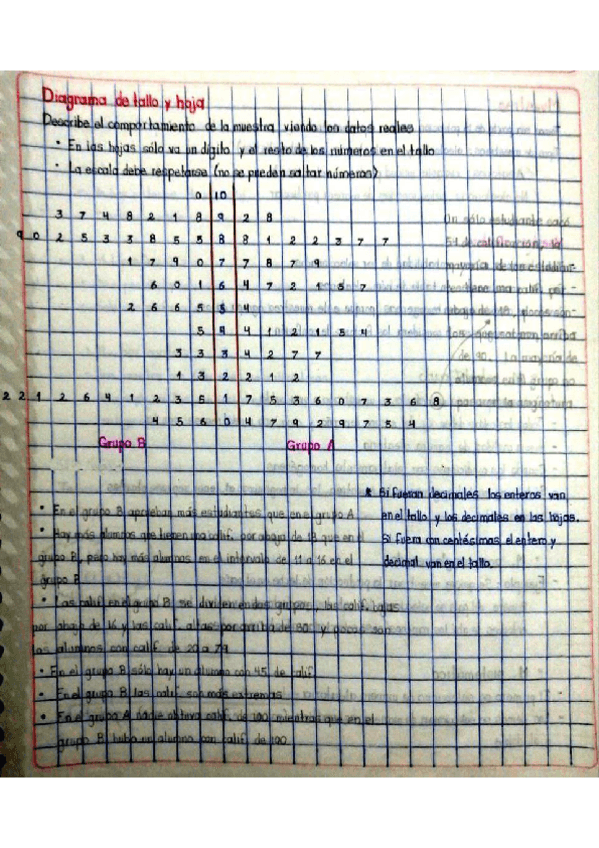 Diagrama de tallo y hoja
Describe el comportamiento de la muestra viendo los datos reales
• En las hojas sólo va un dígito y el resto de los números en el tallo
• La escala debe respetarse (no se pueden saltar números)
0 10
3 7 4 8 2 1 8 9 2 8
9 0 2 5 3 3 8 5 5 8 8 1 2 2 3 7 7
1 7 9 0 7 7 8 7 9
6 0 1 6 4 7 2 1 5 7
2 6 6 5 5 4
5 4 4 1 2 1 5 4
3 3 3 4 2 7 7
1 3 2 2 1 2
2 2 1 2 6 4 1 2 3 5 1 7 5 3 6 0 7 3 6 8
4 5 6 0 4 7 9 2 9 7 5 4
Grupo B Grupo A
Un sólo estudiante sacó
54 de calificación, la
mayoría de los estudian-
tiene una calif. por
abajo de 18,
arriba
de 90. La mayoría de
alumnos
* Si fueran decimales los enteros van
en el tallo y los decimales en las hojas.
Si fuera con centésimas el entero y
decimal van en el tallo.
• En el grupo B aprueban más estudiantes que en el grupo A
• Hay más alumnos que tienen una calif. por abajo de 18 que en el
grupo B, pero hay más alumnos en el intervalo de 11 a 16 en el
grupo B
• Las calif. en el grupo B se dividen en dos grupos, las calif. bajas
por abajo de 16 y las calif. altas por arriba de 80 y pocos son
los alumnos con calif. de 20 a 79
• En el grupo B sólo hay un alumno con 45 de calif.
• En el grupo B las calif. son más extremas
• En el grupo A nadie obtuvo calif. de 100 mientras que en el
grupo B hubo un alumno con calif. de 100